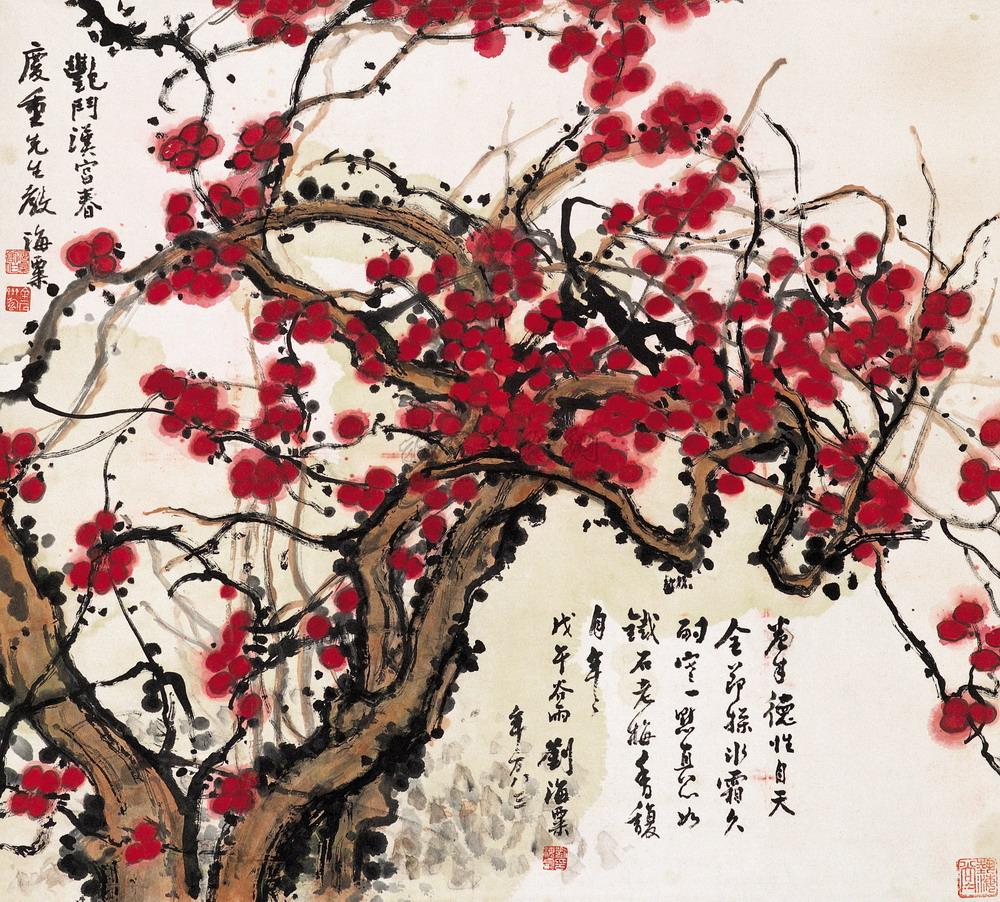 艷鬥漢宮春
慶重先生教 海粟
德性自天
全節操冰霜久
耐寒一點真心如
鐵石老梅香馥
自年〻
戊午谷雨 劉海粟
年方八三